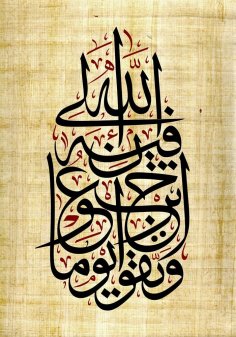 واتقوا يوما
ترجعون
فيه
إلى الله